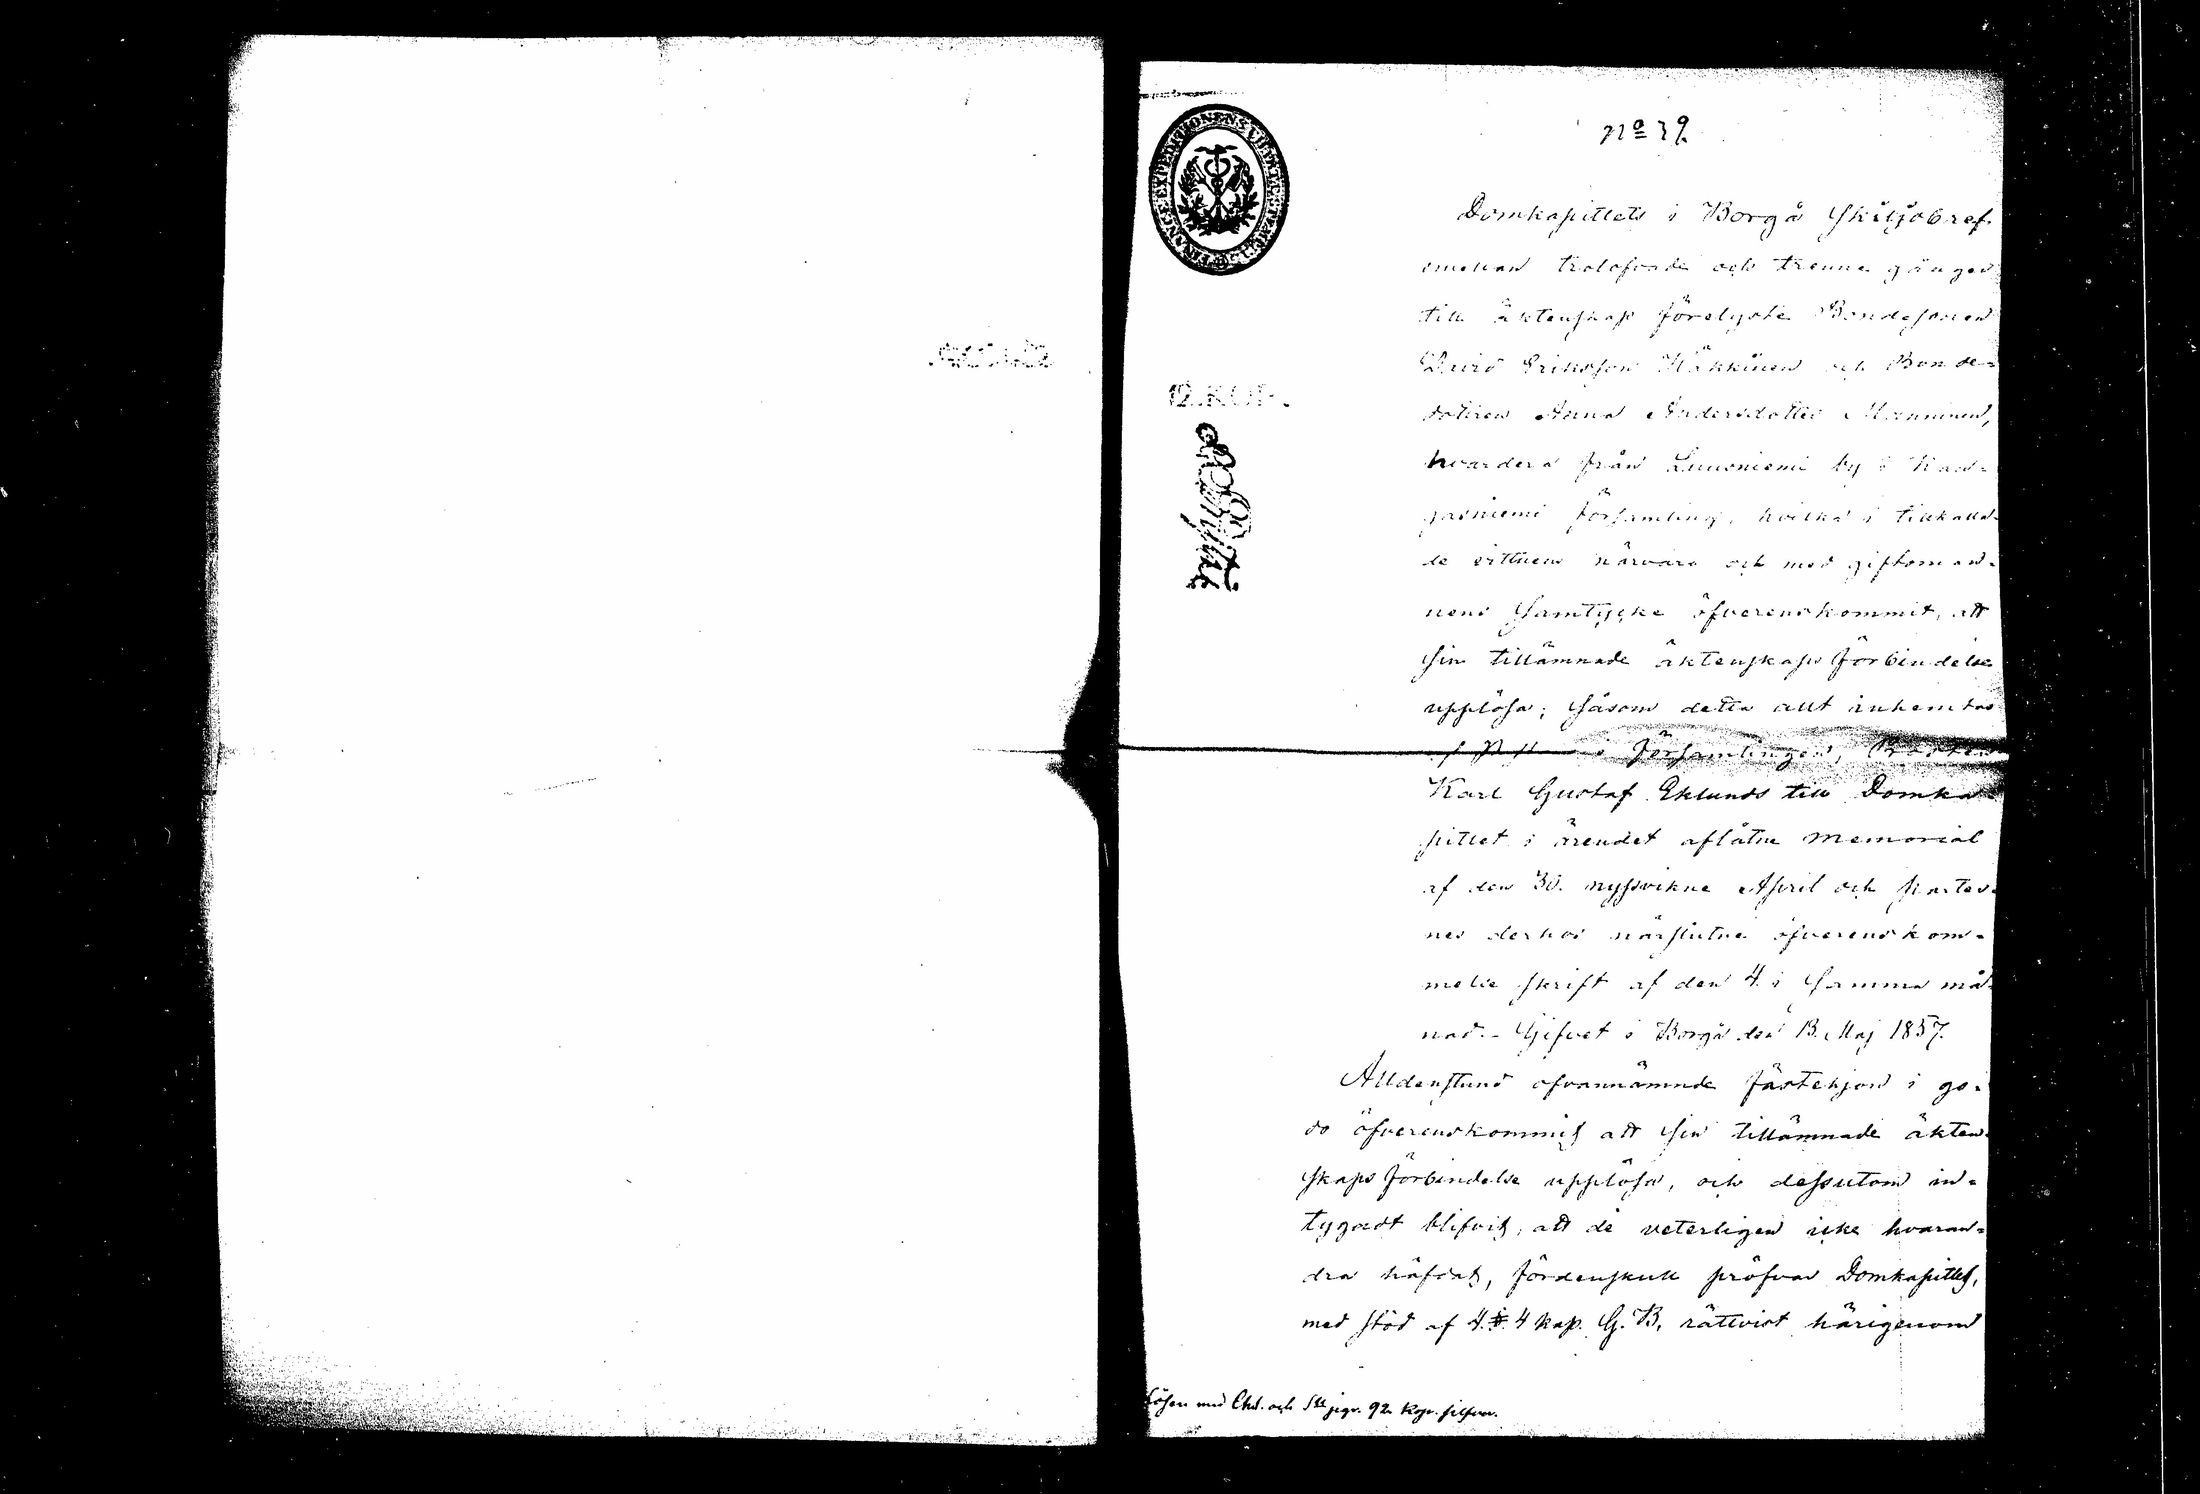 No 39.
Domkapitlets i Borgå Skiljobref
emellan trolofvade och trenne gånger
till äktenskap förelyste Bondesonen
David Eriksson Häkkinen och Bonde-
dottren Anna Andersdotter Manninen,
hvardera från Luusniemi by i Kan-
gasniemi församling, hvilka i tillkalla-
de vittnens närvaro och med giftoman-
nens samtycke öfverenskommit, att
sin tillämnade äktenskaps förbindelse
upplösa; såsom detta allt inhemtas
af i församlingen,
Karl Gustaf Eklunds till Domka-
pitlet i ärendet aflåtne memorial
af den 30. nyssvikne April och parter-
nes derhos närslutne öfverenskom-
melse skrift af den 4. i samma må-
nad. - Gifvet i Borgå den 13. Maj 1857.
Alldenstund ofvannämnde fästehjon i go-
do öfverenskommit att sin tillämnade äkten-
skaps förbindelse upplösa, och dessutom in-
tygadt blifvit, att de veterligen icke hvaran-
dra häfdat, fördenskull pröfvar Domkapitlet,
med stöd af 4. §. 4 kap. G. B. rättvist härigenom
12.KOP.
FINANCE EXPEDITIONENS
Lösen med Chd. och 92 Kop. silfver.